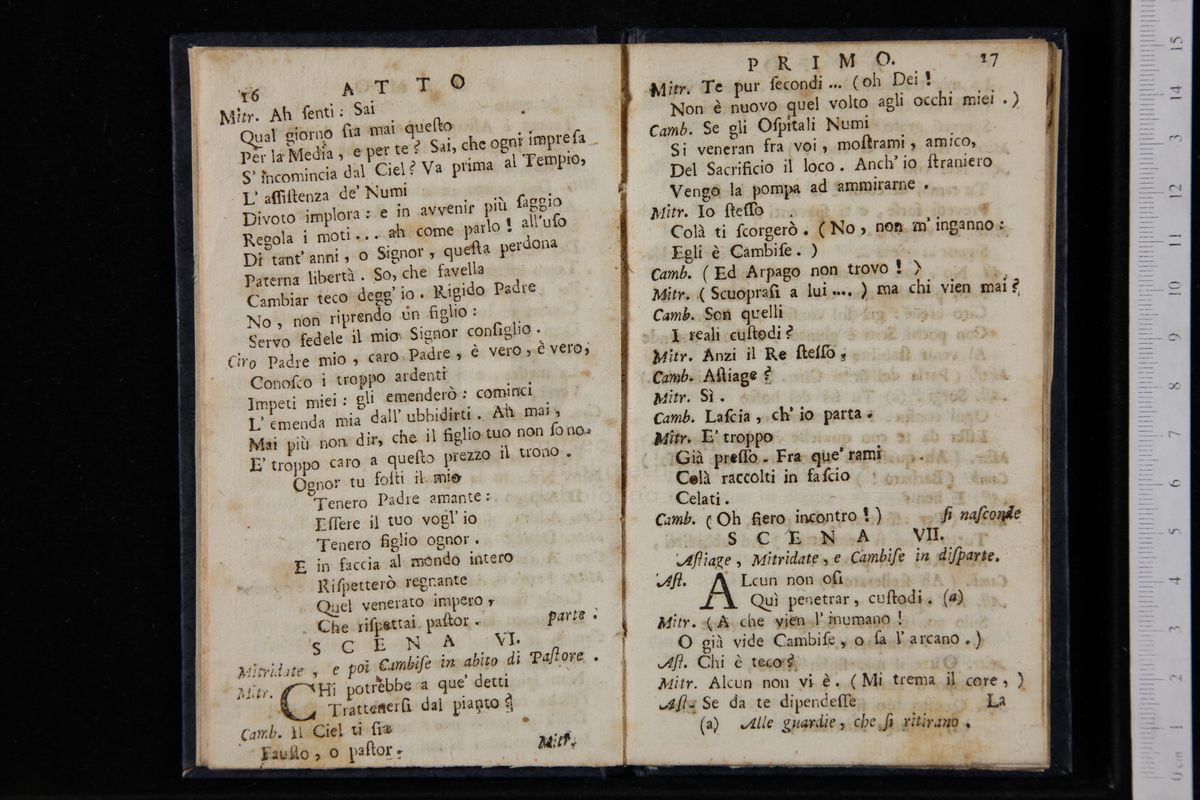 16 ATTO
Mitr. Ah ſenti: Sai
Qual giorno ſia mai queſto
Per la Media, e per te? Sai, che ogni impreſa
S' incomincia dal Ciel? Va prima al Tempio,
L' aſſiſtenza de' Numi
Divoto implora: e in avvenir più ſaggio
Regola i moti... ah come parlo! all'uſo
Di tant' anni, o Signor, queſta perdona
Paterna libertà. So, che favella
Cambiar teco degg' io. Rigido Padre
No, non riprendo un figlio:
Servo fedele il mio Signor conſiglio.
Ciro Padre mio, caro Padre, è vero, è vero;
Conoſco i troppo ardenti
Impeti miei: gli emenderò: cominci
L' emenda mia dall' ubbidirti. Ah mai,
Mai più non dir, che il figlio tuo non ſono.
E' troppo caro a queſto prezzo il trono.
Ognor tu foſti il mio
Tenero Padre amante:
Eſſere il tuo vogl' io
Tenero figlio ognor.
E in faccia al mondo intero
Riſpetterò regnante
Quel venerato impero,
Che riſpettai paſtor. parte:
SCENA VI.
Mitridate, e poi Cambiſe in abito di Paſtore.
Mitr. CHi potrebbe a que' detti
Trattenerſi dal pianto?
Camb. Il Ciel ti ſia
Fauſto, o paſtor.
Mitr.
PRIMO. 17
Mitr. Te pur ſecondi... (oh Dei!
Non è nuovo quel volto agli occhi miei.)
Camb. Se gli Oſpitali Numi
Si veneran fra voi, moſtrami, amico,
Del Sacrificio il loco. Anch' io ſtraniero
Vengo la pompa ad ammirarne.
Mitr. Io ſteſſo
Colà ti ſcorgerò. (No, non m' inganno:
Egli è Cambiſe.)
Camb. (Ed Arpago non trovo!)
Mitr. (Scuopraſi a lui....) ma chi vien mai?
Camb. Son quelli
I reali cuſtodi?
Mitr. Anzi il Re ſteſſo,
Camb. Aſtiage?
Mitr. Sì.
Camb. Laſcia, ch' io parta.
Mitr. E' troppo
Già preſſo. Fra que' rami
Colà raccolti in faſcio
Celati.
Camb. (Oh fiero incontro!) ſi naſconde
SCENA VII.
Aſtiage, Mitridate, e Cambiſe in diſparte.
Aſt. ALcun non oſi
Quì penetrar, cuſtodi. (a)
Mitr. (A che vien l' inumano!
O già vide Cambiſe, o ſa l' arcano.)
Aſt. Chi è teco?
Mitr. Alcun non vi è. (Mi trema il core,)
Aſt. Se da te dipendeſſe
La
(a) Alle guardie, che ſi ritirano.
15
14
13
12
11
10
9
8
7
6
5
4
3
2
1
0 cm